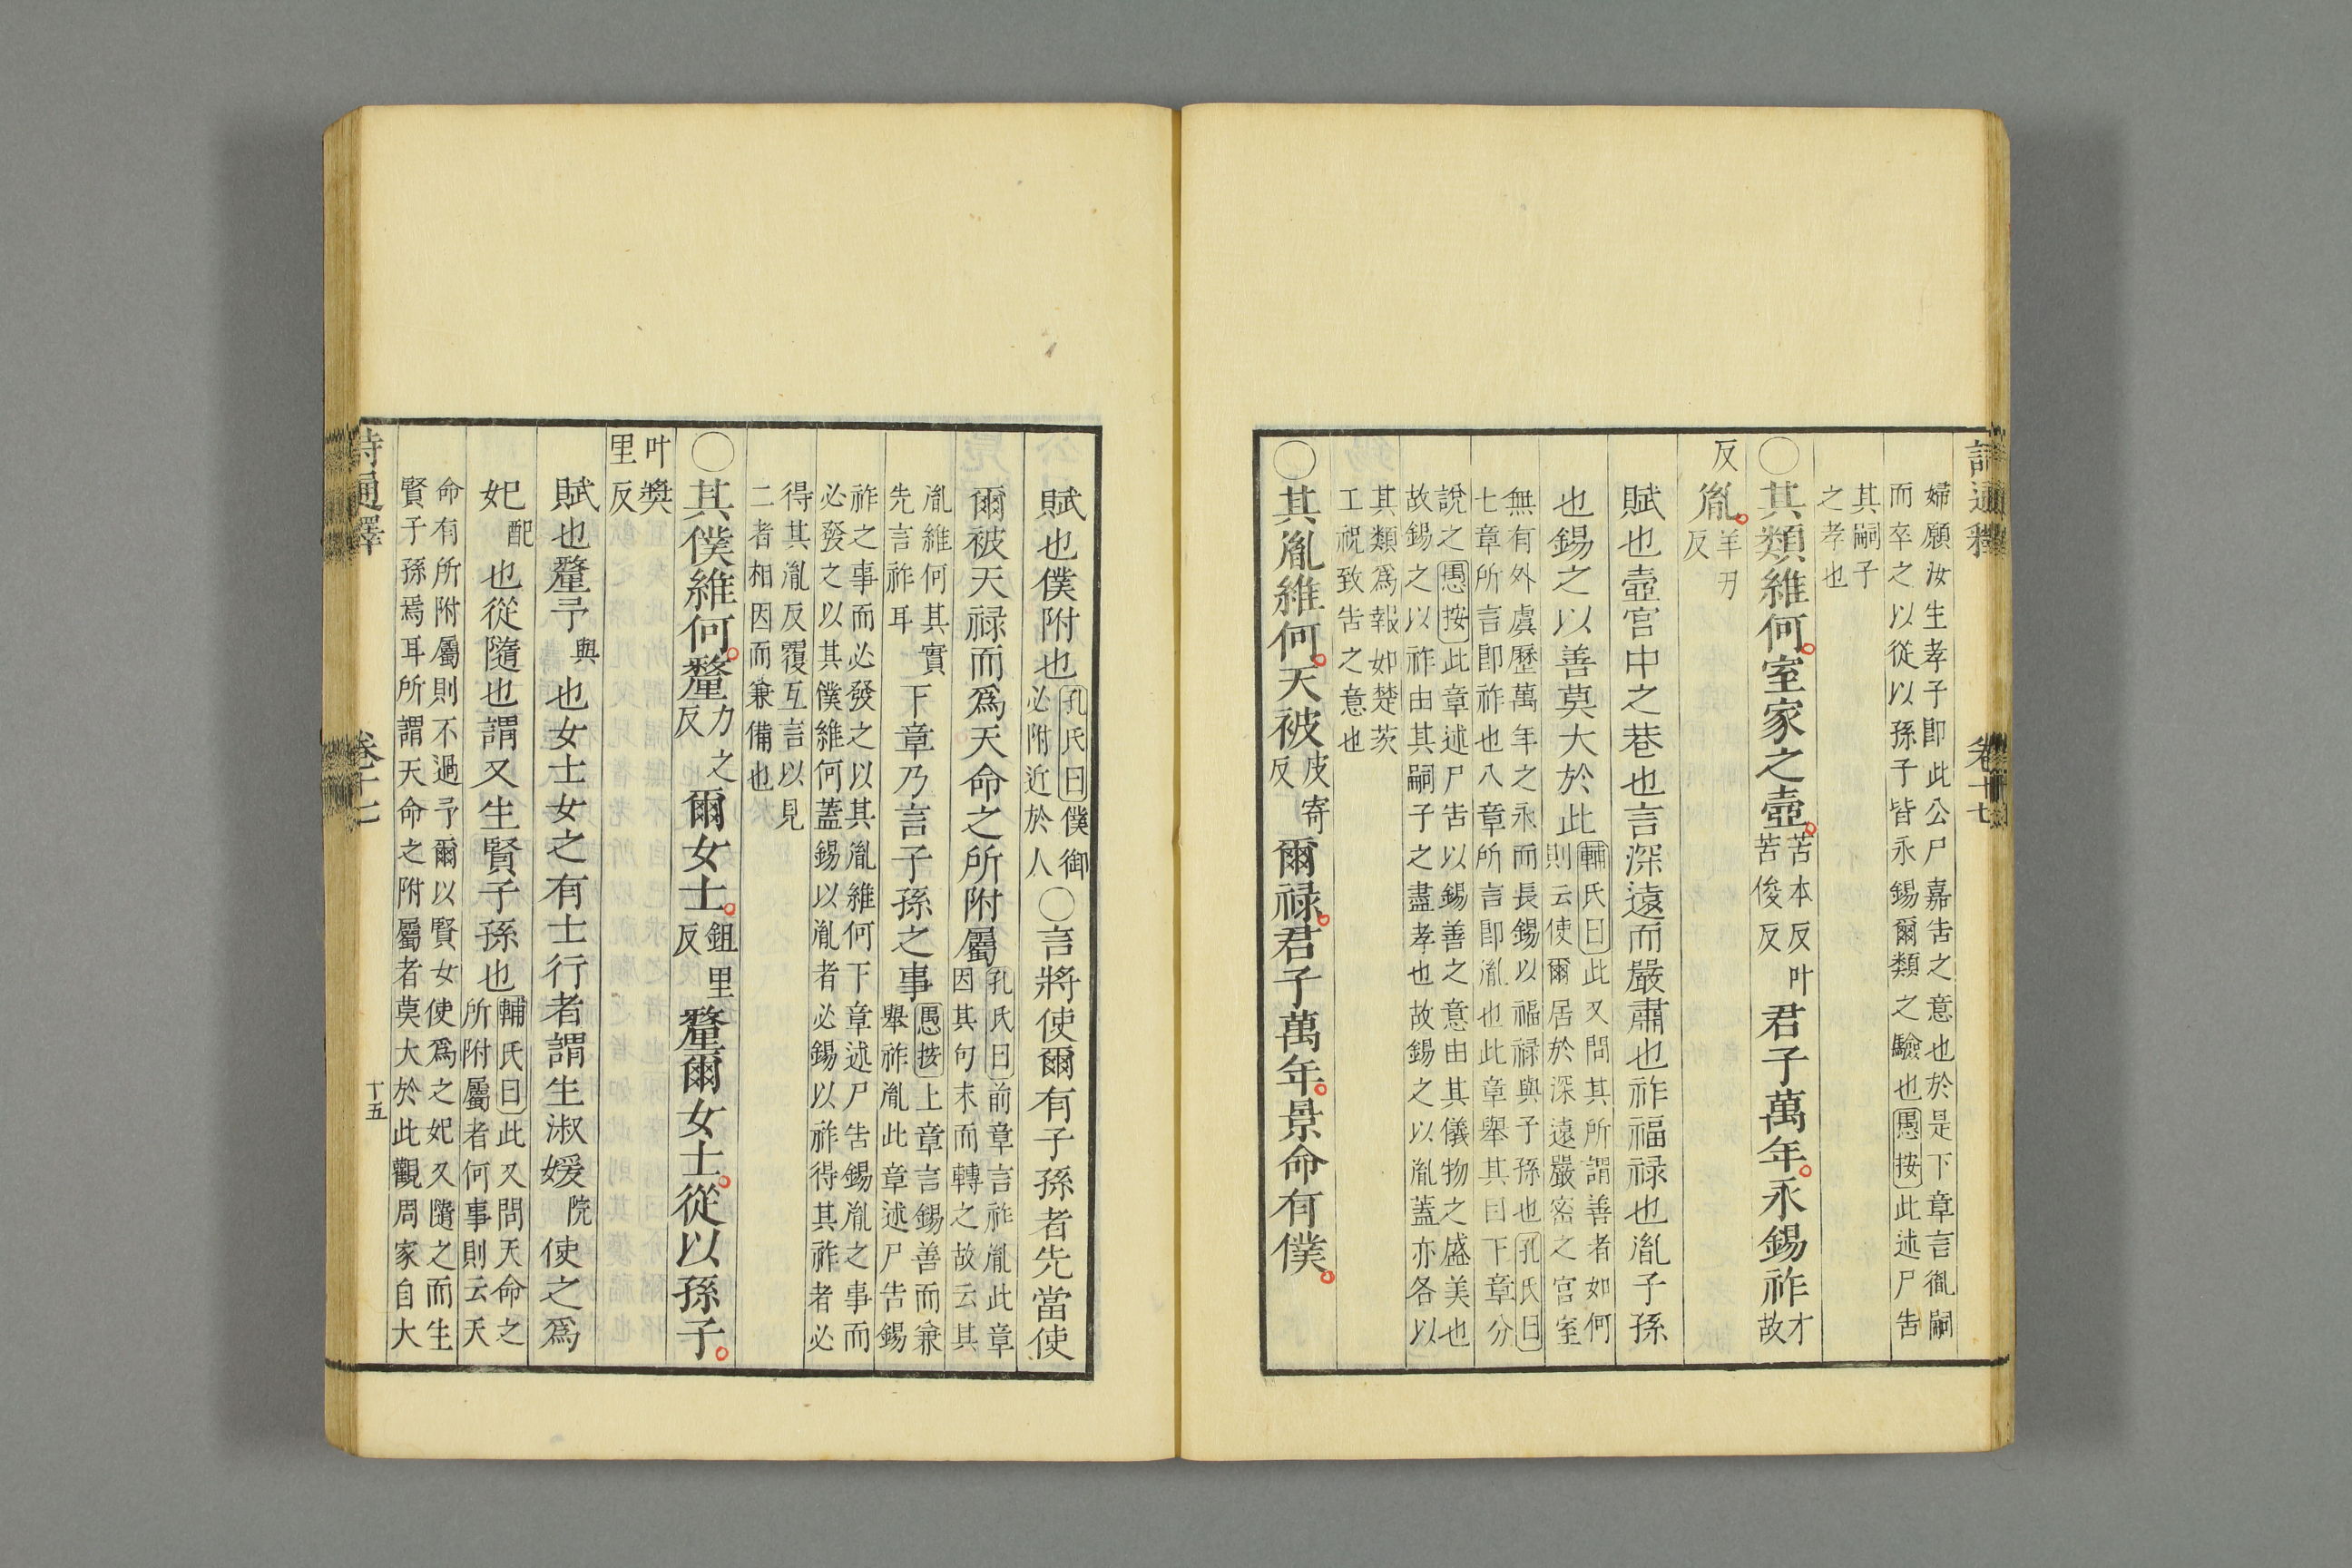 詩通釋 卷十七
婦願汝生孝子卽此公尸嘉吿之意也於是下章言胤嗣
而卒之以從以孫子皆永錫爾類之驗也愚按此述尸吿
其嗣子
之孝也
〇其類維何室家之壼苦本反叶苦俊反君子萬年永錫祚才故
反胤羊刃反
賦也壼宮中之巷也言深遠而嚴肅也祚福祿也胤子孫
也錫之以善莫大於此輔氏曰此又問其所謂善者如何
則云使爾居於深遠嚴密之宮室
無有外虞歷萬年之永而長錫以福祿與子孫也孔氏曰
七章所言卽祚也八章所言卽胤也此章舉其目下章分
說之愚按此章述尸吿以錫善之意由其儀物之盛美也
故錫之以祚由其嗣子之盡孝也故錫之以胤蓋亦各以
其類爲報如楚茨
工祝致吿之意也
〇其胤維何天被皮寄反爾祿君子萬年景命有僕
賦也僕附也孔氏曰僕御必附近於人〇言將使爾有子孫者先當使
爾被天祿而爲天命之所附屬孔氏曰前章言祚胤此章
因其句末而轉之故云其
胤維何其實
先言祚耳
下章乃言子孫之事愚按上章言錫善而兼
舉祚胤此章述尸吿錫
祚之事而必發之以其胤維何下章述尸吿錫胤之事而
必發之以其僕維何蓋錫以胤者必錫以祚得其祚者必
得其胤反覆互言以見
二者相因而兼備也
〇其僕維何釐力之反爾女士鉏里反釐爾女士從以孫子
叶奬里反
賦也釐予與也女士女之有士行者謂生淑媛院使之爲
妃配也從隨也謂又生賢子孫也輔氏曰此又問天命之
所附屬者何事則云天
命有所附屬則不過予爾以賢女使爲之妃又隨之而生
賢子孫焉耳所謂天命之附屬者莫大於此觀周家自大
詩通釋 卷十七 十五